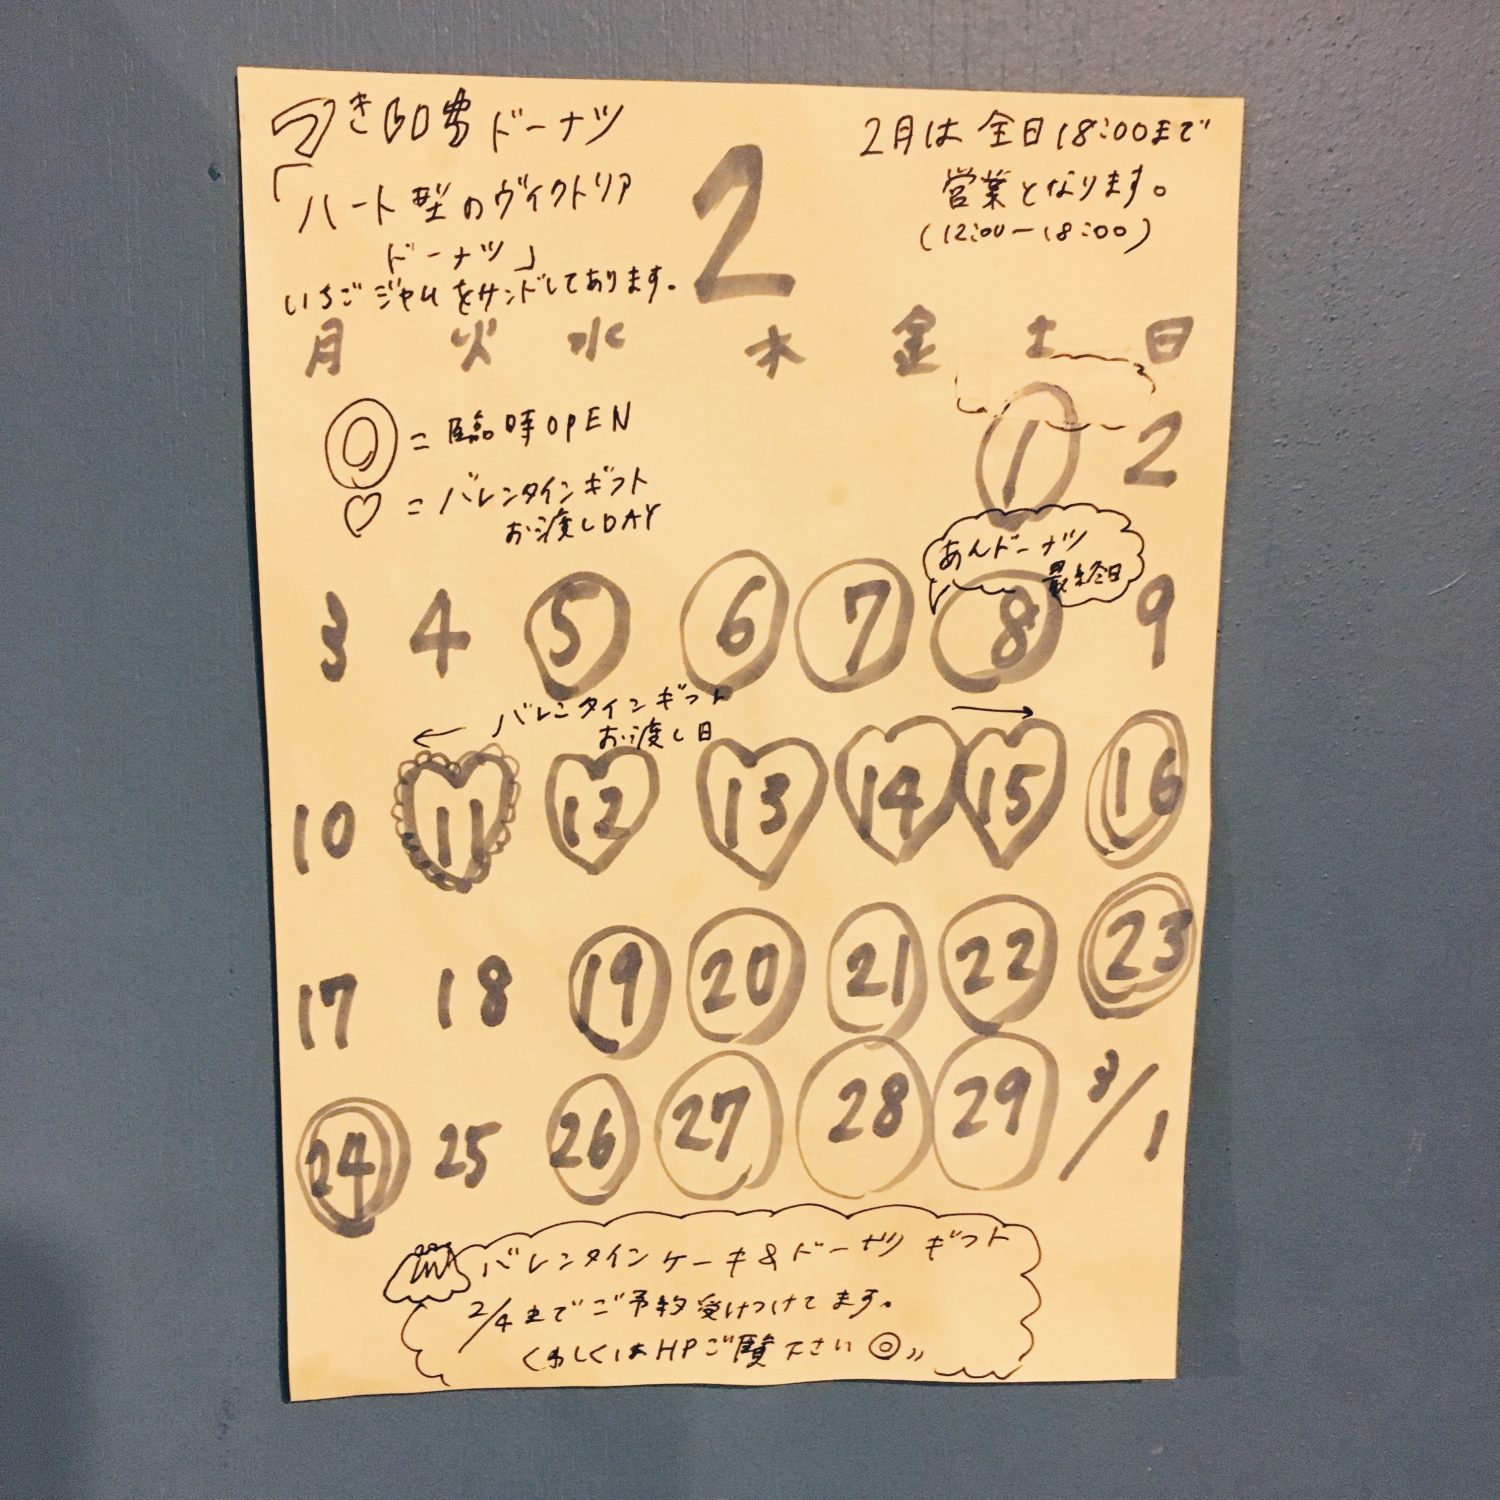 つき印費ドーナツ
「ハート型のヴィクトリア
ドーナツ」
いちごジャムをサンドしてあります。
2
2月は全日18:00まで
営業となります。
(12:00-18:00)
月 火 水 木 金 土 日
◎=臨時OPEN
♡=バレンタインギフト
お渡しDAY
1 2
あんドーナツ
最終日
3 4 5 6 7 8 9
← バレンタインギフト →
お渡し日
10 11 12 13 14 15 16
17 18 19 20 21 22 23
24 25 26 27 28 29 3/1
バレンタインケーキ&ドーナツギフト
2/4までご予約受けつけてます。
くわしくはHPご覧下さい◎,,